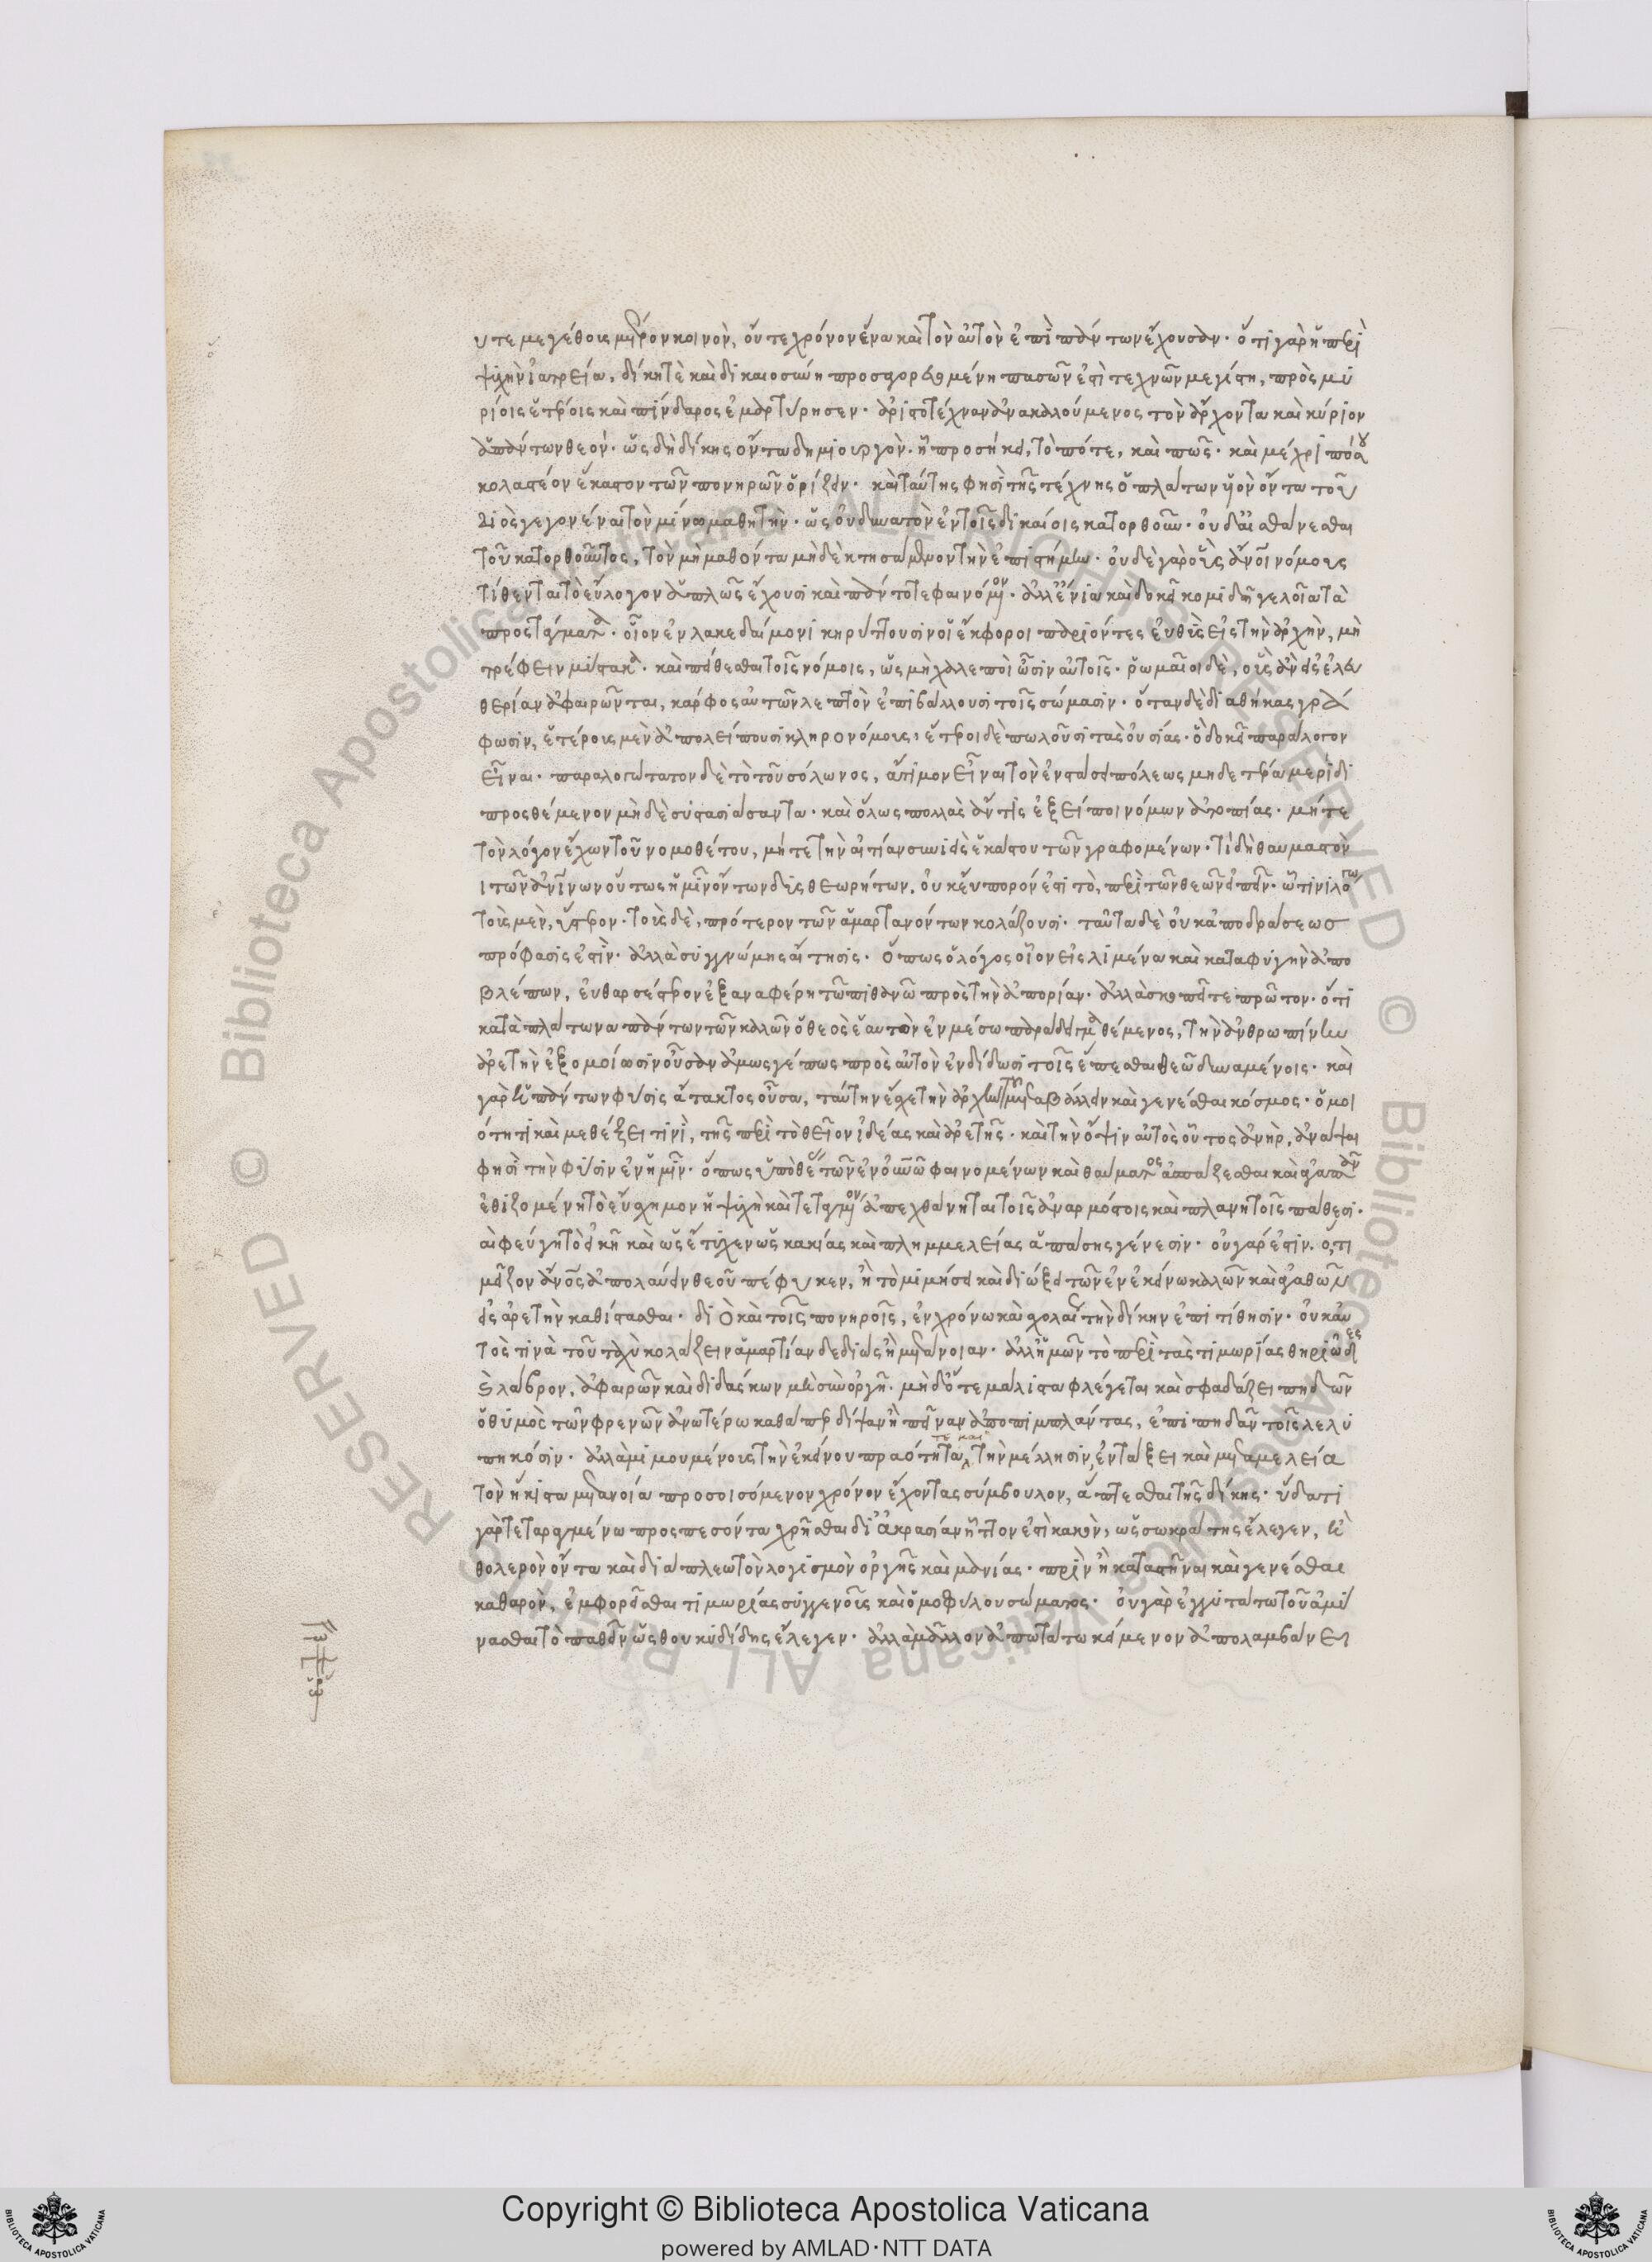 υτε μεγέθους μέτρον κοινὸν, οὔτε χρόνον ἕνα καὶ τὸν αὐτὸν ἐπὶ πάντων ἔχουσαν· ὅτι γὰρ ἡ περὶ
ψυχὴν ἰατρεία, δίκη τὲ καὶ δικαιοσύνη προσαγορευομένη πασῶν ἐστὶ τεχνῶν μεγίστη, πρὸς μυ
ρίοις ἑτέροις καὶ πίνδαρος ἐμαρτύρησεν· ἀριστοτέχναν ἀνακαλούμενος τὸν ἄρχοντα καὶ κύριον
ἁπάντων θεόν· ὡς δὴ δίκης ὄντα δημιουργὸν· ᾗ προσήκει, τὸ πότε, καὶ πῶς· καὶ μέχρι πόσου
κολαστέον ἕκαστον τῶν πονηρῶν ὁρίζειν· καὶ ταύτης φησὶ τῆς τέχνης ὁ πλάτων υἱὸν ὄντα τοῦ
Διὸς γεγονέναι τὸν μίνω μαθητὴν· ὡς οὐ δυνατὸν ἐν τοῖς δικαίοις κατορθοῦν· οὐδ' αἰσθάνεσθαι
τοῦ κατορθοῦντος, τὸν μὴ μαθόντα μηδὲ κτησάμενον τὴν ἐπιστήμην· οὐδὲ γὰρ οὓς ἄνθρωποι νόμους
τίθενται τὸ εὔλογον ἁπλῶς ἔχουσι καὶ πάντοτε φαινόμενον· ἀλλ' ἔνια καὶ δοκεῖ κομιδῇ γελοῖα τὰ
προσταγμάτων· οἷον ἐν λακεδαίμονι κηρύττουσιν οἱ ἔφοροι παριόντες εὐθὺς εἰς τὴν ἀρχὴν, μὴ
τρέφειν μύστακα· καὶ πείθεσθαι τοῖς νόμοις, ὡς μὴ χαλεποὶ ὦσιν αὐτοῖς· ῥωμαῖοι δὲ, οὓς ἂν εἰς ἐλευ
θερίαν ἀφαιρῶνται, κάρφος αὐτῶν λεπτὸν ἐπιβάλλουσι τοῖς σώμασιν· ὅταν δὲ διαθήκας γρά
φωσιν, ἑτέρους μὲν ἀπολείπουσι κληρονόμους, ἑτέροι δὲ πωλοῦσι τὰς οὐσίας· ὃ δοκεῖ παράλογον
εἶναι· παραλογώτατον δὲ τὸ τοῦ σόλωνος, ἄτιμον εἶναι τὸν ἐν στάσει πόλεως μηδετέρα μερίδι
προσθέμενον μηδὲ συστασιάσαντα· καὶ ὅλως πολλὰς ἄν τις ἐξείποι νόμων ἀτοπίας· μήτε
τὸν λόγον ἔχων τοῦ νομοθέτου, μήτε τὴν αἰτίαν συνιδὲς ἑκάστου τῶν γραφομένων· τί δὴ θαυμαστὸν
ι τῶν ἀνθρωπίνων οὕτως ἡμῖν ὄντων δυσθεωρήτων, οὐκ εὔπορόν ἐστι τὸ, περὶ τῶν θεῶν εἰπεῖν· ᾧτινι λόγω
τοὺς μὲν, ὕστερον· τοὺς δὲ, πρότερον τῶν ἁμαρτανόντων κολάζουσι· ταῦτα δὲ οὐκ ἀποδράσεως
πρόφασίς ἐστὶν· ἀλλὰ συγγνώμης αἴτησις· ὅπως ὁ λόγος οἷον εἰς λιμένα καὶ καταφυγὴν ἀπο
βλέπων, εὐθαρσέστερον ἐξαναφέρη τῶ πιθανῶ πρὸς τὴν ἀπορίαν· ἀλλὰ σκοπεῖτε πρῶτον· ὅτι
κατὰ πλάτωνα πάντων τῶν καλῶν ὁ θεὸς ἑαυτὸν ἐν μέσω παράδειγμα θέμενος, τὴν ἀνθρωπίνην
ἀρετὴν ἐξομοίωσιν οὖσαν ἁμωσγέπως πρὸς αὑτὸν ἐνδίδωσι τοῖς ἕπεσθαι θεῶ δυναμένοις· καὶ
γὰρ ἡ πάντων φύσις ἄτακτος οὖσα, ταύτην ἔσχε τὴν ἀρχὴν τοῦ μεταβάλλειν καὶ γενέσθαι κόσμος· ὁμοι
ότητι καὶ μεθέξει τινὶ, τῆς περὶ τὸ θεῖον ἰδέας καὶ ἀρετῆς· καὶ τὴν ὄψιν αὐτὸς οὗτος ἀνὴρ, ἀνάψαι
φησὶ τὴν φύσιν ἐν ἡμῖν· ὅπως ὑπὸ θέας τῶν ἐν οὐρανῶ φαινομένων καὶ θαύματος ἀσπάζεσθαι καὶ ἀγαπᾶν
ἐθιζομένη τὸ εὔσχημον ἡ ψυχὴ καὶ τεταγμένον ἀπεχθάνηται τοῖς ἀναρμόστοις καὶ πλανητοῖς πάθεσι·
αὶ φεύγη τὸ εἰκῆ καὶ ὡς ἔτυχεν ὡς κακίας καὶ πλημμελείας ἁπάσης γένεσιν· οὐ γάρ ἐστιν. ὅ,τι
μεῖζον ἄνθρωπος ἀπολαύειν θεοῦ πέφυκεν, ἢ τὸ μιμήσει καὶ διώξει τῶν ἐν ἐκείνω καλῶν καὶ ἀγαθῶν
εἰς ἀρετὴν καθίστασθαι· διὸ καὶ τοῖς πονηροῖς, ἐν χρόνω καὶ σχολαίως τὴν δίκην ἐπιτίθησιν· οὐκ αὐ
τὸς τινὰ τοῦ ταχὺ κολάζειν ἁμαρτίαν δεδιὼς ἢ μετάνοιαν· ἀλλ' ἡμῶν τὸ περὶ τὰς τιμωρίας θηριῶδες
ς λάβρον, ἀφαιρῶν καὶ διδάσκων μὴ σὺν ὀργῇ· μηδ' ὅτε μάλιστα φλέγεται καὶ σφαδάζει πηδῶν
ὁ θυμὸς τῶν φρενῶν ἀνωτέρω καθάπερ δίψαν ἢ πεῖναν ἀποπιμπλάντας, ἐπιπηδᾶν τοῖς λελυ
πηκόσιν· ἀλλὰ μιμουμένους τὴν ἐκείνου πραότητα τε και τὴν μέλλησιν, ἐν τάξει καὶ μετ' ἀμελεία
τὸν ἥκιστα μετανοία προσοισόμενον χρόνον ἔχοντας σύμβουλον, ἅπτεσθαι τῆς δίκης· ὕδατι
γὰρ τεταραγμένω προσπεσόντα χρῆσθαι δι' ἀκρασίαν ἧττόν ἐστι κακὸν, ὡς σωκράτης ἔλεγεν, ἢ
θολερὸν ὄντα καὶ διάπλεω τὸν λογισμὸν ὀργῆς καὶ μανίας· πρὶν ἢ καταστῆναι καὶ γενέσθαι
καθαρὸν, ἐμφορεῖσθαι τιμωρίας συγγενοῦς καὶ ὁμοφύλου σώματος· οὐ γὰρ ἐγγυτάτω τοῦ ἀμύ
νασθαι τὸ παθεῖν ὡς θουκυδίδης ἔλεγεν· ἀλλὰ μᾶλλον ἀπωτάτω κείμενον ἀπολαμβάνει
Copyright © Biblioteca Apostolica Vaticana
powered by AMLAD·NTT DATA